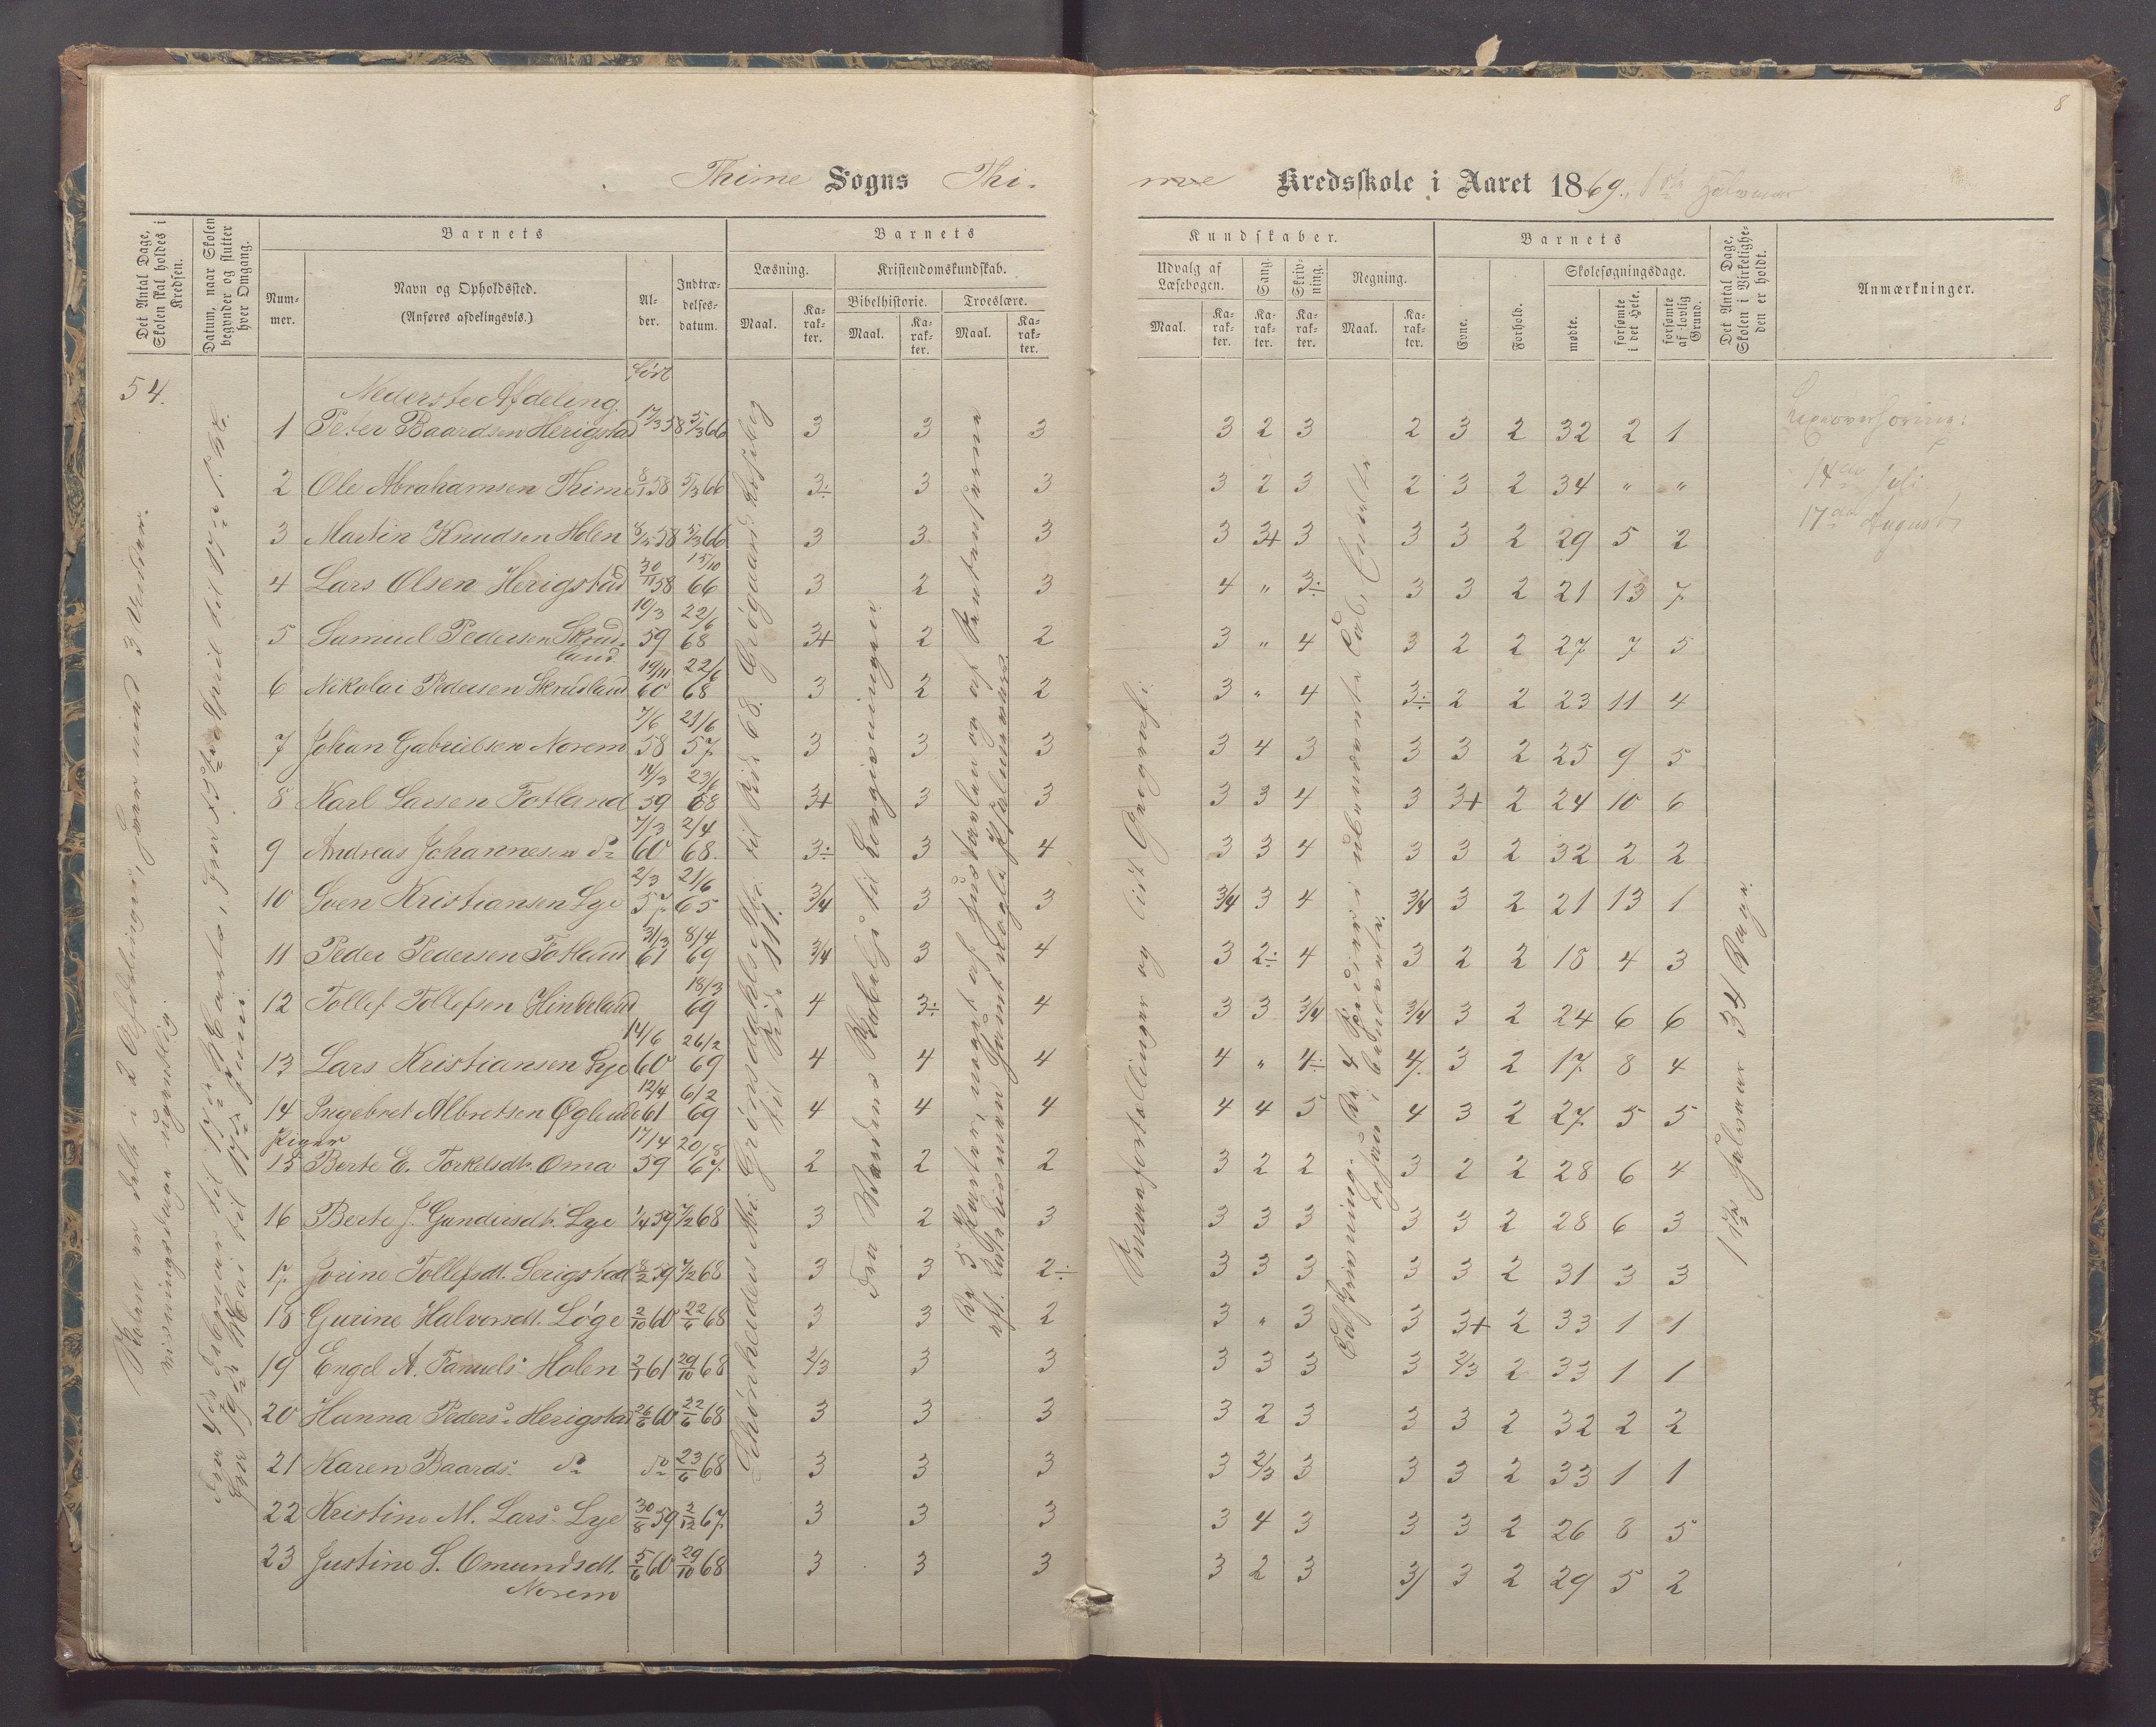 8
Thime Sogns Thi-
me Kredsskole i Aaret 1869, 1ste Halvaar
Det Antal Dage, Skolen skal holdes i Kredsen.
Datum, naar Skolen begynder og slutter hver Omgang.
Barnets
Num-mer.
Navn og Opholdssted.
(Anføres afdelingsvis.)
Al-der.
Indtræ-delses-datum.
Barnets
Læsning.
Maal.
Ka-rak-ter.
Kristendomskundskab.
Bibelhistorie.
Maal.
Ka-rak-ter.
Troeslære.
Maal.
Ka-rak-ter.
Kundskaber.
Udvalg af Læsebogen.
Maal.
Ka-rak-ter.
Sang.
Ka-rak-ter.
Skriv-ning.
Ka-rak-ter.
Regning.
Maal.
Ka-rak-ter.
Barnets
Evne.
Forhold.
Skolesøgningsdage.
mødte.
forsømte i det Hele.
forsømte af lovlig Grund.
Det Antal Dage, Skolen i Virkelighe-den er holdt.
Anmærkninger.
født
54.
Nederste Afdeling.
1 Peter Baardsen Herigstad 17/3 58 5/3 66 3 3 3 3 2 3 2 3 2 32 2 1
2 Ole Abrahamsen Thime 8/1 58 5/3 66 3÷ 3 3 3 2 3 2 3 2 34 " "
14de Juli
17de August
3 Martin Knudsen Holen 58 5/3 66 3 3 3 3 3+ 3 3 3 2 29 5 2
4 Lars Olsen Herigstad 30/11 58 15/10 66 3 2 3 4 " 3÷ 3 3 2 21 13 7
5 Samuel Pedersen Skrud-land 10/3 59 22/6 68 3+ 2 2 3 " 4 3 2 2 27 7 5
6 Nikolai Pedersen Skrudland 19/11 60 22/6 68 3 2 2 3 " 4 3÷ 2 2 23 11 4
7 Johan Gabrielsen Norem 7/6 58 21/6 57 3 3 3 3 4 3 3 3 2 25 9 5
8 Karl Larsen Fotland 14/3 59 23/6 68 3+ 3 3 3 3 4 3 3+ 2 24 10 6
9 Andreas Johannesen do 7/3 60 2/4 68. 3÷ 3 4 3 3 4 3 3 2 32 2 2
10 Sven Kristiansen Lye 2/3 57 21/6 65 3/4 3 3 3/4 3 4 3/4 3 2 21 13 1
11 Peder Pedersen Fotland 31/3 61 8/4 69 3/4 3 4 3 2÷ 4 3 2 2 18 4 3
12 Tollef Tollefsen Hinkeland 18/3 69 4 3÷ 4 3 3 3/4 3/4 3 2 24 6 6
13 Lars Kristiansen Lye 14/6 60 26/2 69 4 4 4 4 " 4÷ 4 3 2 17 8 4
14 Ingebret Albretsen Øglend 12/4 61 6/2 69 4 4 4 4 4 5 4 3 2 27 5 5
Piger
15 Berte E. Torkelsdt. Oma 17/4 59 20/8 67 2 2 2 3 2 2 3 2 2 28 6 4
16 Berte J. Gundersdt. Lye 1/4 59 7/2 68 3 2 3 3 3 3 3 3 2 28 6 3
17 Jorine Tollefsdt. Serigstad 8/2 59 7/2 68 3 3 2÷ 3 3 3 3 3 2 31 3 3
18 Gurine Halvorsdt. Løge 2/10 60 22/6 68 3 3 2 3 " 3 3 3+ 2 33 1 1
19 Engel A. Fanuels. Holen 2/1 61 29/10 68 2/3 3 3 3 3 3 3 2/3 2 33 1 1
20 Hanna Peders. Herigstad 26/6 60 22/6 68 3 3 3 3 2 3 3 3 2 32 2 2
21 Karen Baards. do do 23/6 68 3 3 3 3 2/3 3 3 3 2 33 1 1
22 Kristine M. Lars. Lye 30/8 59 2/12 67 3 3 3 3 4 3 3 3 2 26 8 5
23 Justine S. Omundsdt. Norem 5/6 60 29/10 68 3 3 3 3 2 3 3 3 2 29 5 2
Skolen er delt i 2 Afdelinger, hver med 3 Under-
visningsdage ugentlig.
til 17de Marts, fra 5te April til 17de
19de Mai til 17de Juni.
til Side 68. Grøgaards Læsebog
til Side 111.
Fra til Lovgivningen
5 Parter, noget af Hustavlen og af
samt nogle Psalmevers
Fortællinger og lidt Geografi.
De 4 Specier i ubenævnte
i benævnte.
1ste Halvaar 34 Dage.